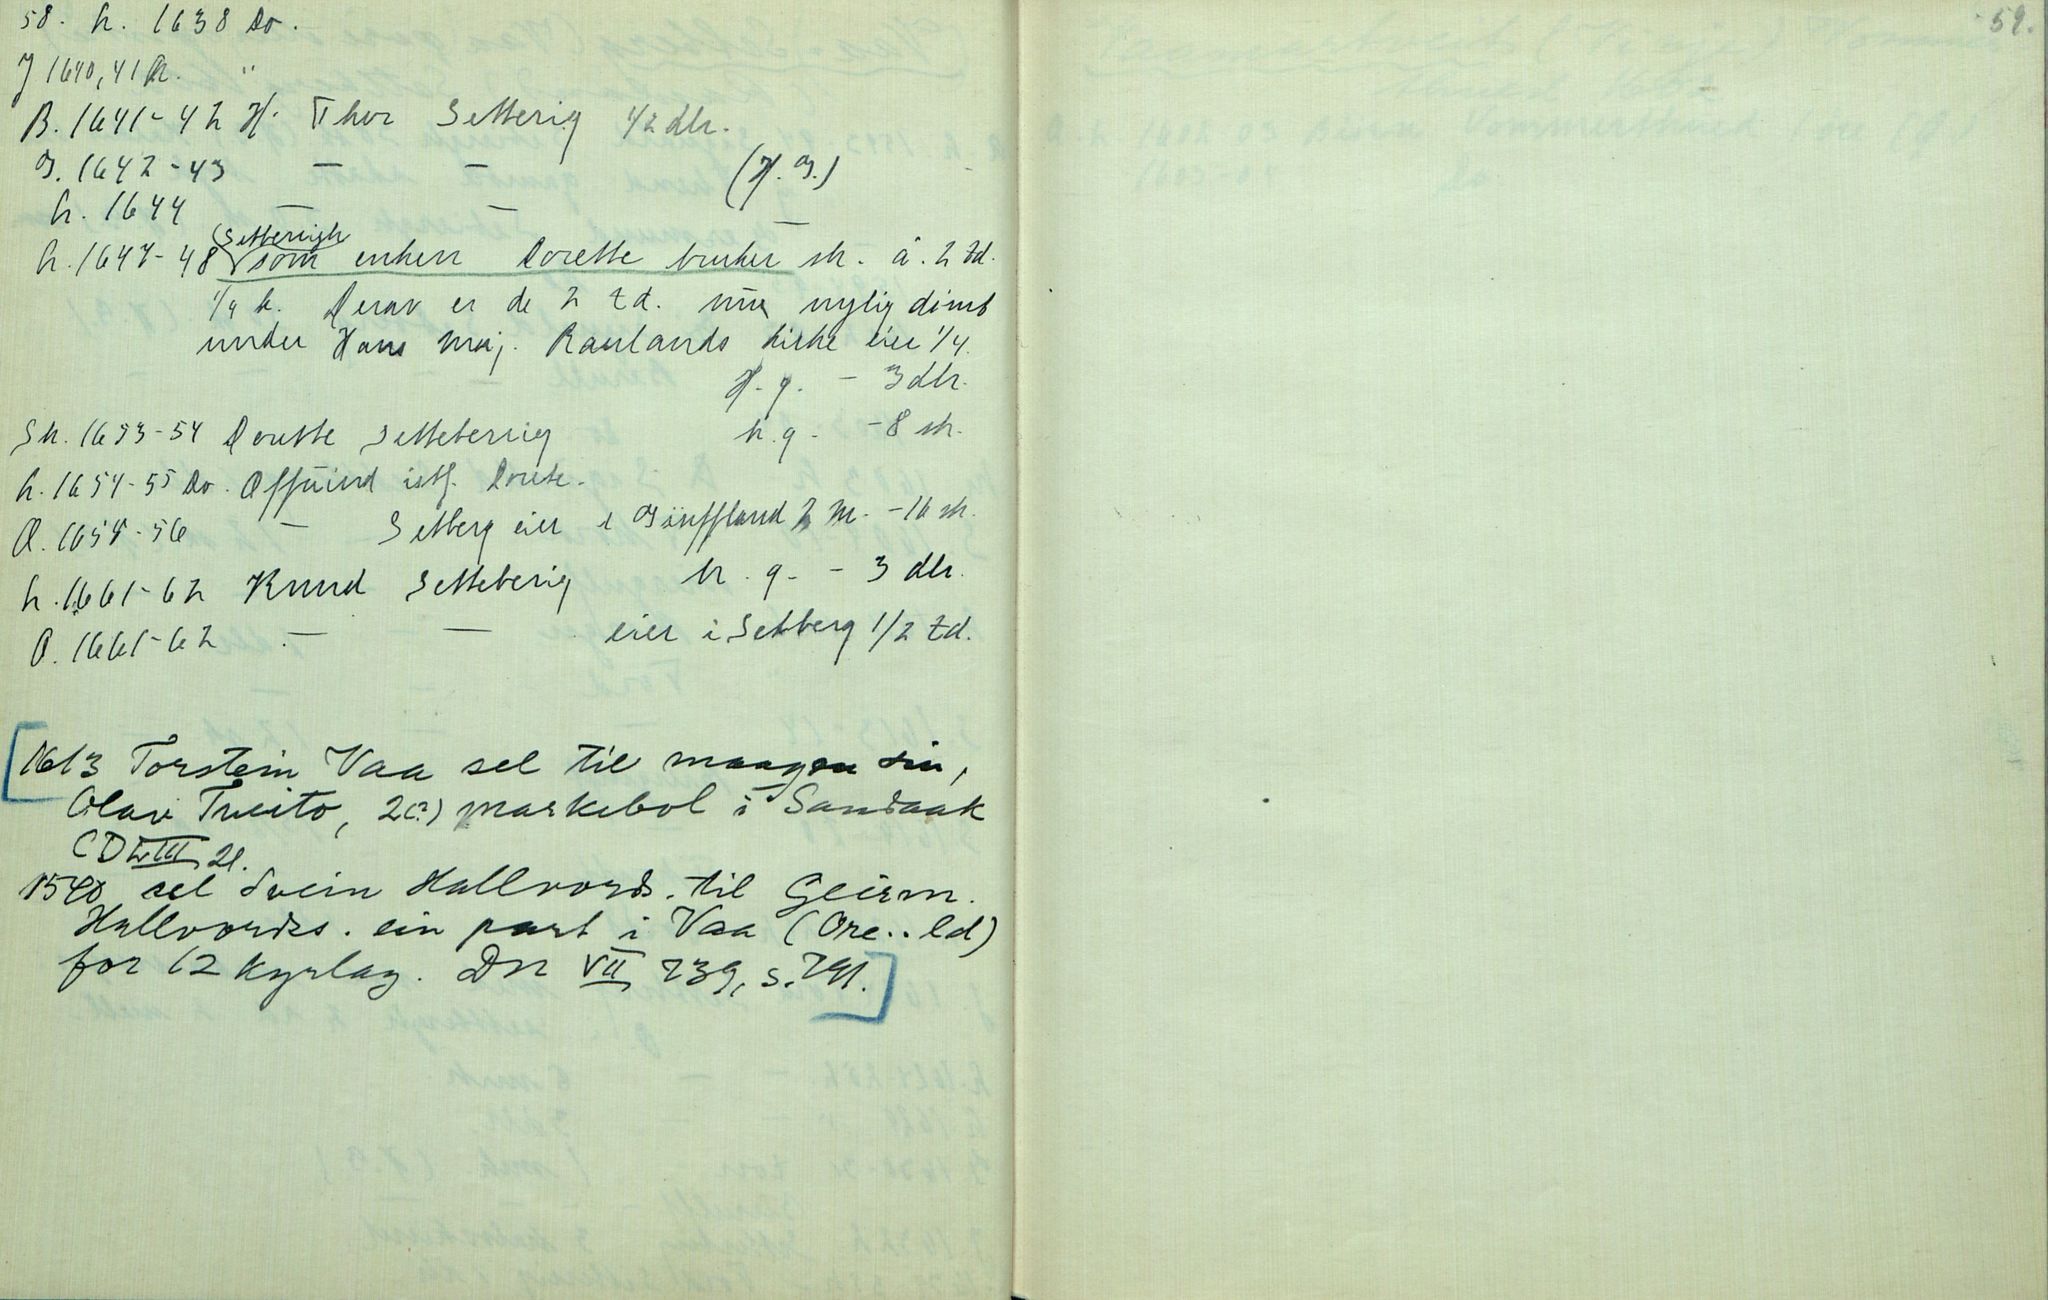 58. h. 1638 Do.
J 1640, 41 h. "
B. 1641-42 H. Thor Setterig 1/2 dlr.
J. 1642-43 — — (H. J.)
h. 1644 — — —
Setterigh
h. 1647-48 som enken Dorette bruker sk. å. 2 td.
1/4 k. Derav er de 2 td. nu nylig dømt
under Hans Maj. Raulands kirke eier 1/4.
H. g. - 3 dlr.
Sk. 1653-54 Dorette Setteberrig h. g. - 8 sk.
h. 1654-55 Do. Offuind istf. Dorete.
O. 1654-56 — Setberg eier i 2 m. - 16 sk.
h. 1661-62 Knud Setteberig h. g. - 3 dlr.
O. 1661-62 — — eier i Setberg 1/2 td.
[1613 Torstein Vaa sel til maagen sin,
Olav Tveito, 2(?) markebol i Sandaak
CD 21.
1540 sel Svein Hallvords. til Geirm.
Hallvords. ein part i Vaa (Ore..ld)
for 12 kyrlag. DN VII 739, s. 791.]
59.